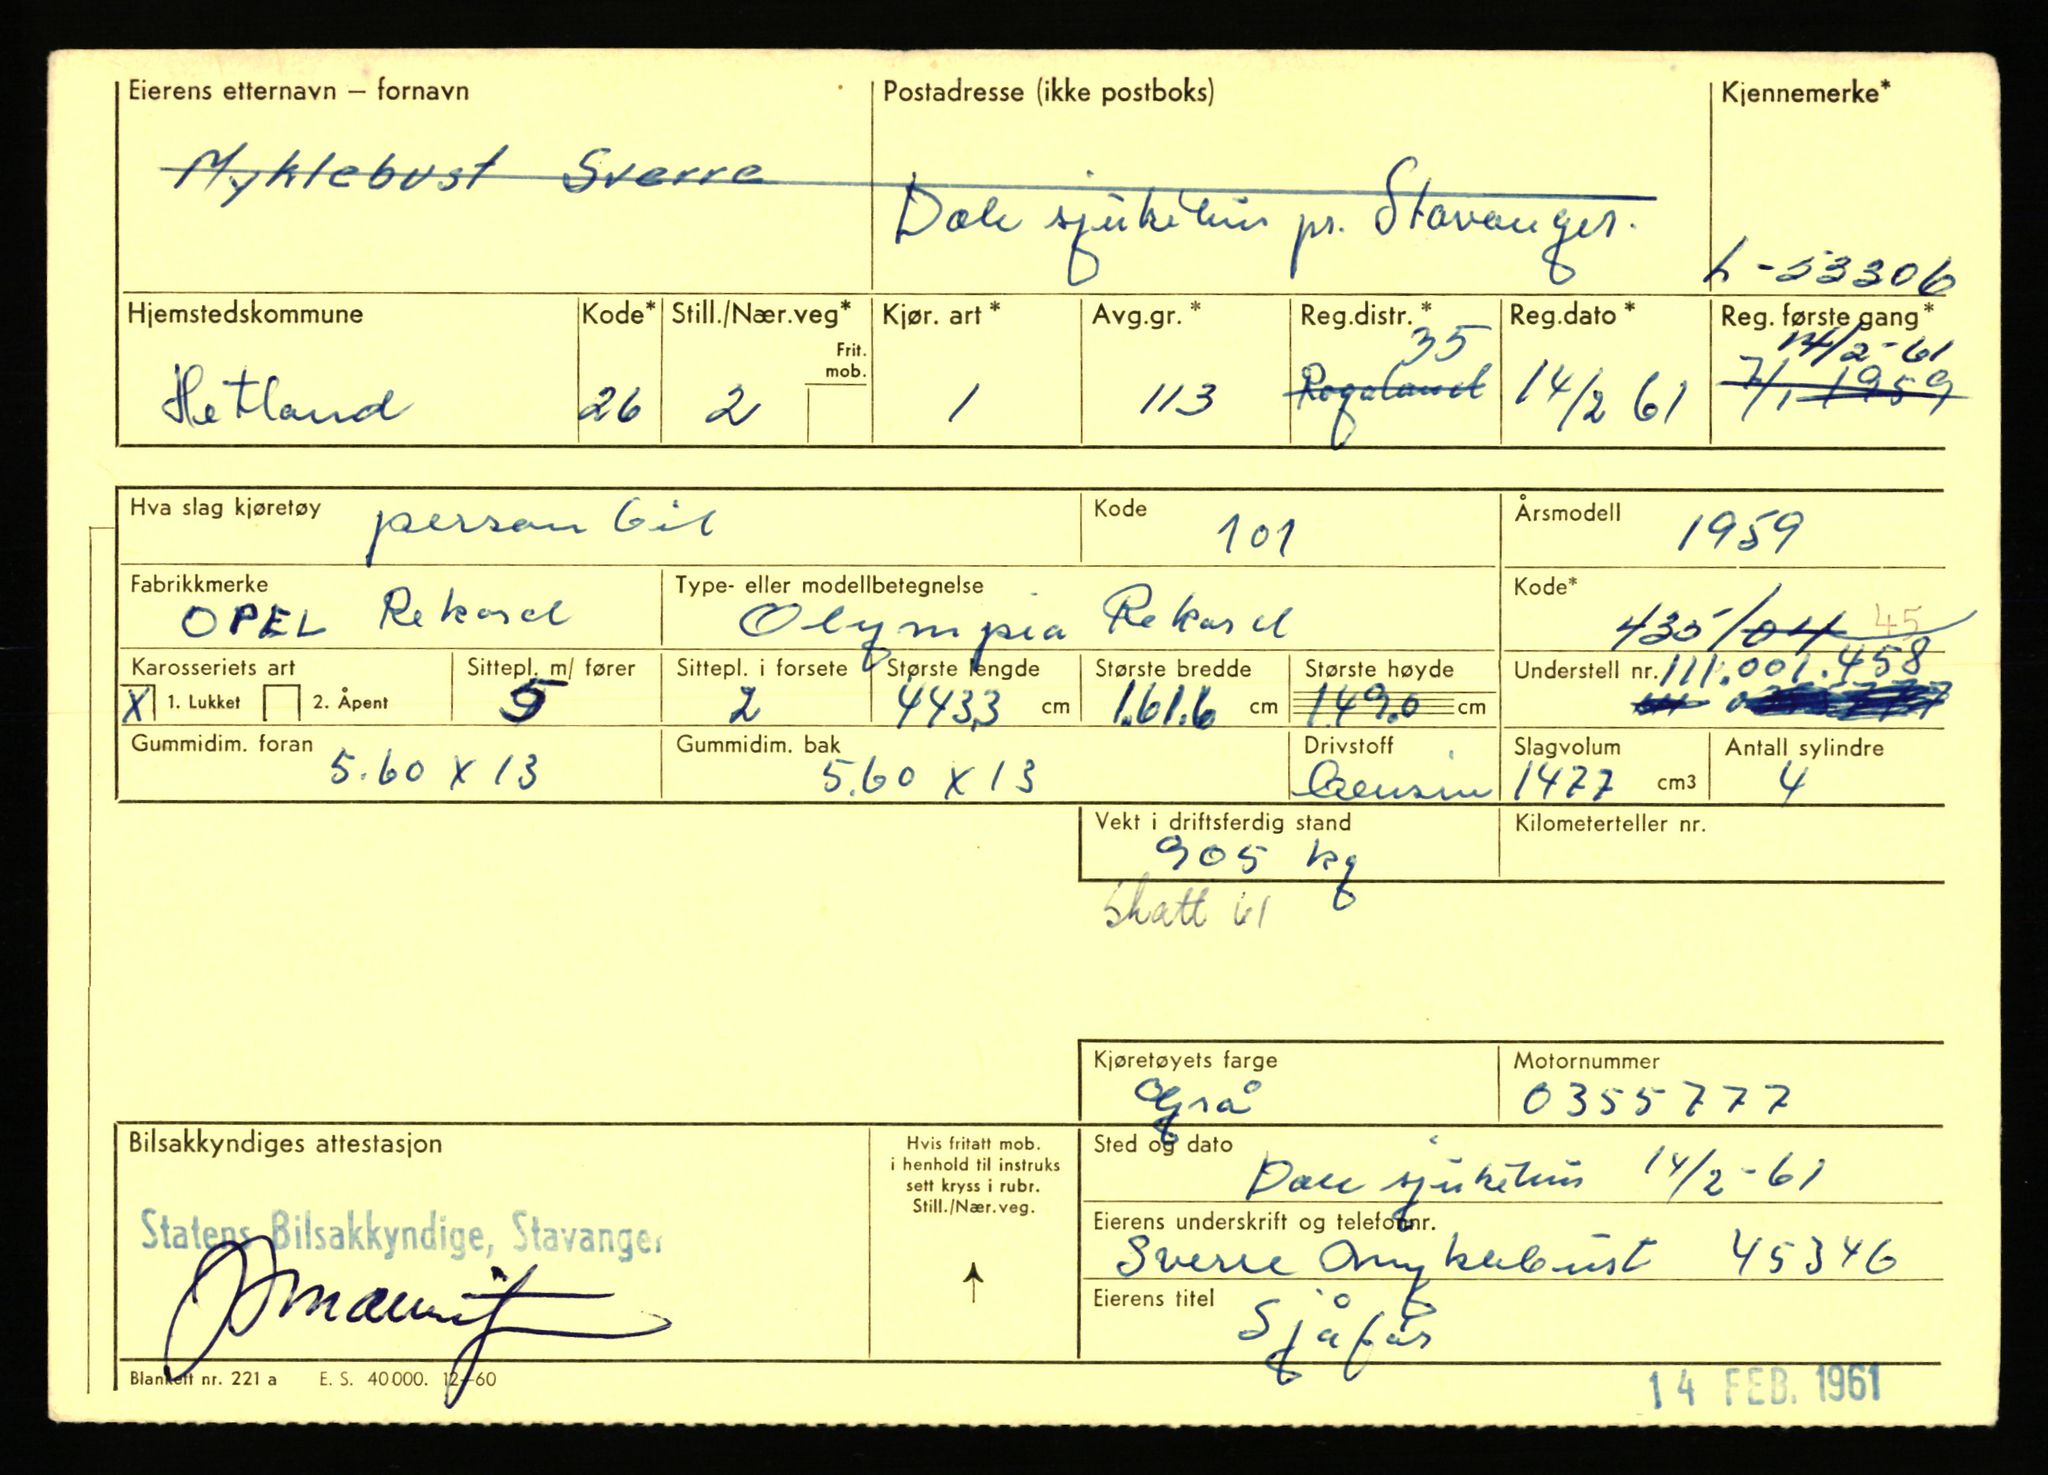 Eierens etternavn – fornavn Postadresse (ikke postboks) Kjennemerke*
Myklebust Sverre
Dale sjukehus pr. Stavanger.
L-53306
Hjemstedskommune Kode* Still./Nær.veg* Kjør. art * Avg.gr. * Reg.distr. * Reg.dato * Reg. første gang*
Frit. mob.
35 14/2-61
Hetland 26 2 1 113 Rogaland 14/2 61 7/1 1959
Hva slag kjøretøy personbil Kode 101 Årsmodell 1959
Fabrikkmerke Type- eller modellbetegnelse Kode*
OPEL Rekord Olympia Rekord 435/04 45
Karosseriets art Sittepl. m/ fører Sittepl. i forsete Største lengde Største bredde Største høyde Understell nr. 111.001.458
X 1. Lukket 2. Åpent 5 2 443,3 cm 161.6 cm 149.0 cm
Gummidim. foran Gummidim. bak Drivstoff Slagvolum Antall sylindre
5.60 x 13 5.60 x 13 Bensin 1477 cm3 4
Vekt i driftsferdig stand Kilometerteller nr.
905 kg
Skatt 61
Kjøretøyets farge Motornummer
Grå 0355777
Bilsakkyndiges attestasjon Hvis fritatt mob.
i henhold til instruks
sett kryss i rubr.
Still./Nær.veg.
Sted og dato
Dale sjukehus 14/2-61
Statens Bilsakkyndige, Stavanger
Eierens underskrift og telefonnr.
Sverre Myklebust 45346
Eierens titel
Sjåfør
Blankett nr. 221 a E. S. 40 000. 12–60
14 FEB. 1961